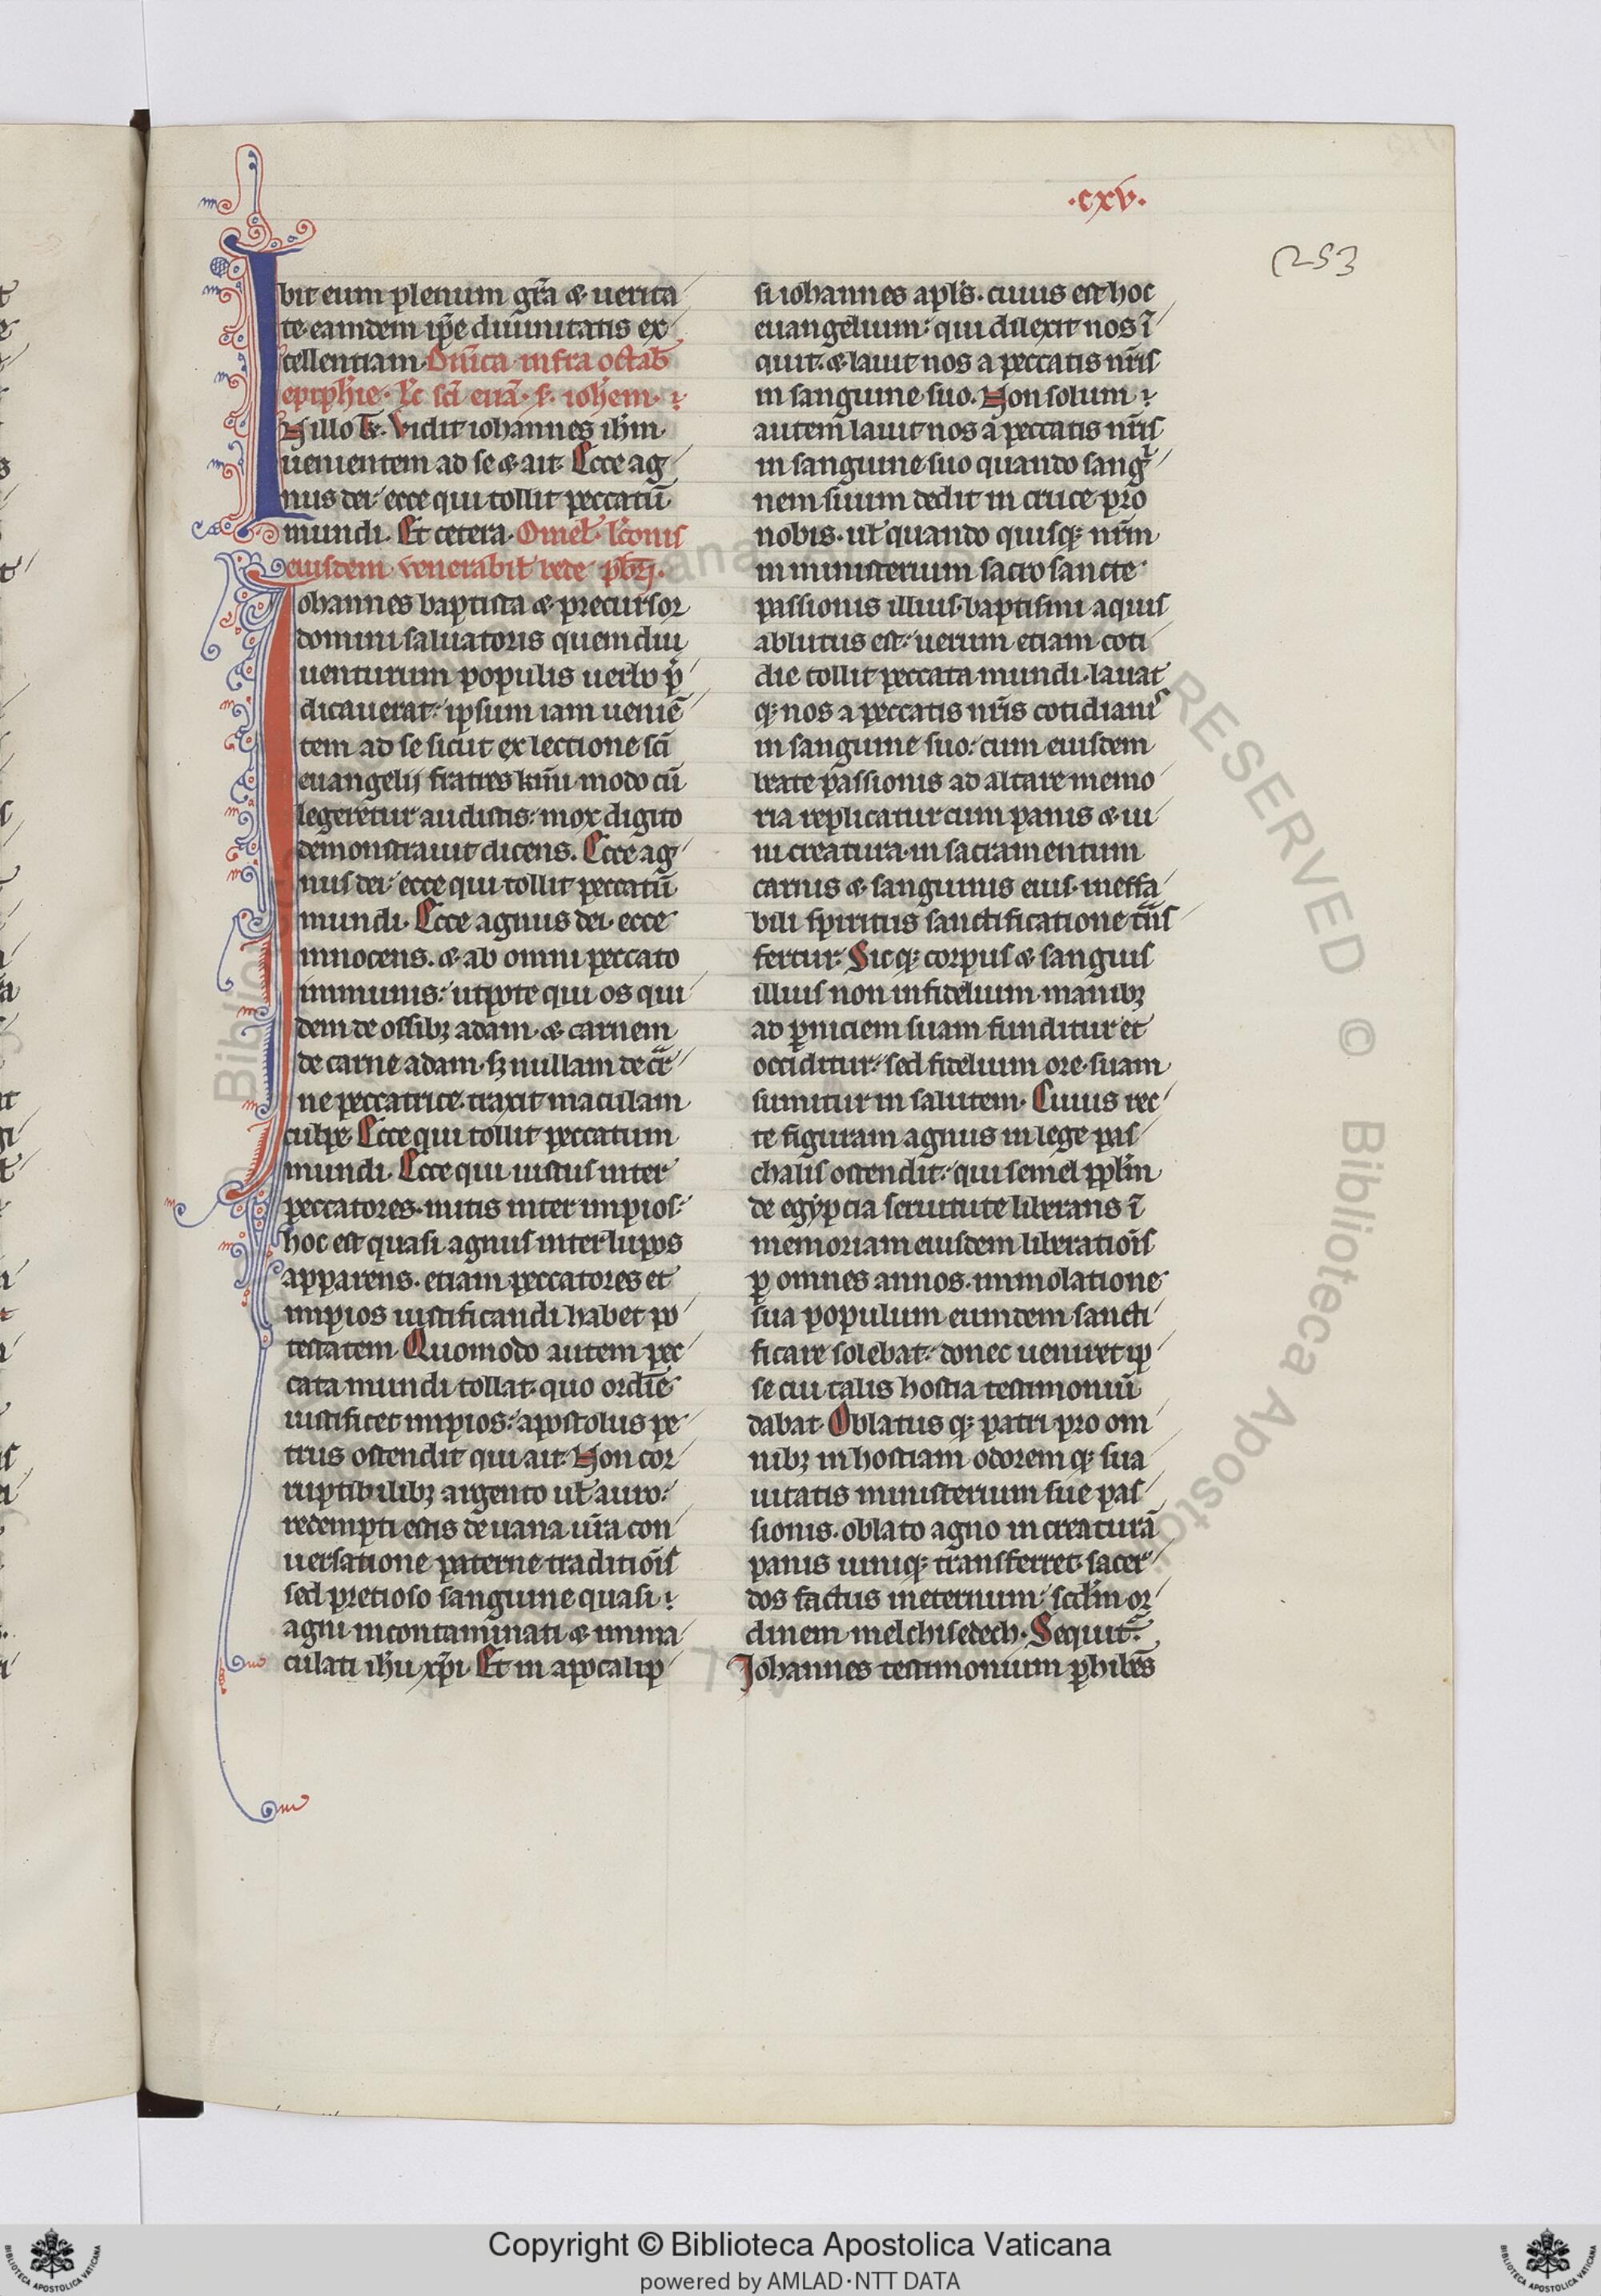 .cxv.
253
bit eum plenum gr̄a & uerita
te eamdem ip̄e diuinitatis ex
cellentiam. Dn̄ica infra octab̄
epiph̄ie. lc̄ sc̄i eūā. s. ioh̄em.
IN illo t̄. Vidit iohannes ih̄m
uenientem ad se & ait. Ecce ag
nus dei: ecce qui tollit peccatū
mundi. Et cetera. Omel̄. lc̄onis
eiusdem venerabil̄ bede pb̄ri.
Iohannes baptista & precursor
domini saluatoris quem diu
uenturum populis uerbo p̄
dicauerat: ipsum iam ueniē
tem ad se sicut ex lectione sc̄i
euangelij fratres km̄i modo cū
legeretur audistis: mox digito
demonstrauit dicens. Ecce ag
nus dei: ecce qui tollit peccatū
mundi. Ecce agnus dei. ecce
innocens. & ab omni peccato
immunis: utpote qui os qui
dem de ossibꝫ adam. & carnem
de carne adam. sꝫ nullam de car
ne peccatrice traxit maculam
culpe. Ecce qui tollit peccatum
mundi. Ecce qui iustus inter
peccatores. mitis inter impios:
hoc est quasi agnus inter lupos
apparens. etiam peccatores et
impios iustificandi habet po
testatem. Quomodo autem pec
cata mundi tollat. quo ordīe
iustificet impios: apostolus pe
trus ostendit qui ait. Non cor
ruptibilibꝫ argento ul̄ auro:
redempti estis de uana ur̄a con
uersatione paterne traditiōis
sed pretioso sanguine quasi
agni incontaminati & imma
culati ih̄u xp̄i. Et in apocalip
si iohannes apl̄s. cuius est hoc
euangelium: qui dilexit nos ī
quit. & lauit nos a peccatis nr̄is
in sanguine suo. Non solum
autem lauit nos a peccatis nr̄is
in sanguine suo quando sangui
nem suum dedit in cruce pro
nobis. ul̄ quando quisqꝫ nr̄m
in ministerium sacro sancte
passionis illius baptismi aquis
ablutus est: uerum etiam coti
die tollit peccata mundi. lauat
qꝫ nos a peccatis nr̄is cotidianis
in sanguine suo: cum eiusdem
beate passionis ad altare memo
ria replicatur cum panis & ui
ni creatura in sacramentum
carnis & sanguinis eius. ineffa
bili spiritus sanctificatione trāns
fertur. Sicqꝫ corpus & sanguis
illius non infidelium manibꝫ
ad ꝑniciem suam funditur et
occiditur: sed fidelium ore suam
sumitur in salutem. Cuius rec
te figuram agnus in lege pas
chalis ostendit: qui semel pp̄lm
de egypcia seruitute liberans ī
memoriam eiusdem liberatiōis
ꝑ omnes annos. immolatione
sua populum eumdem sancti
ficare solebat: donec ueniret ip
se cui talis hostia testimoniū
dabat. Oblatus qꝫ patri pro om
nibꝫ in hostiam odorem qꝫ sua
uitatis ministerium sue pas
sionis. oblato agno in creaturā
panis uiniqꝫ transferret. sacer
dos factus ineternum: scd̄m or
dinem melchisedech. Sequit̄.
Johannes testimonium ꝑhibēs
Copyright © Biblioteca Apostolica Vaticana
powered by AMLAD·NTT DATA